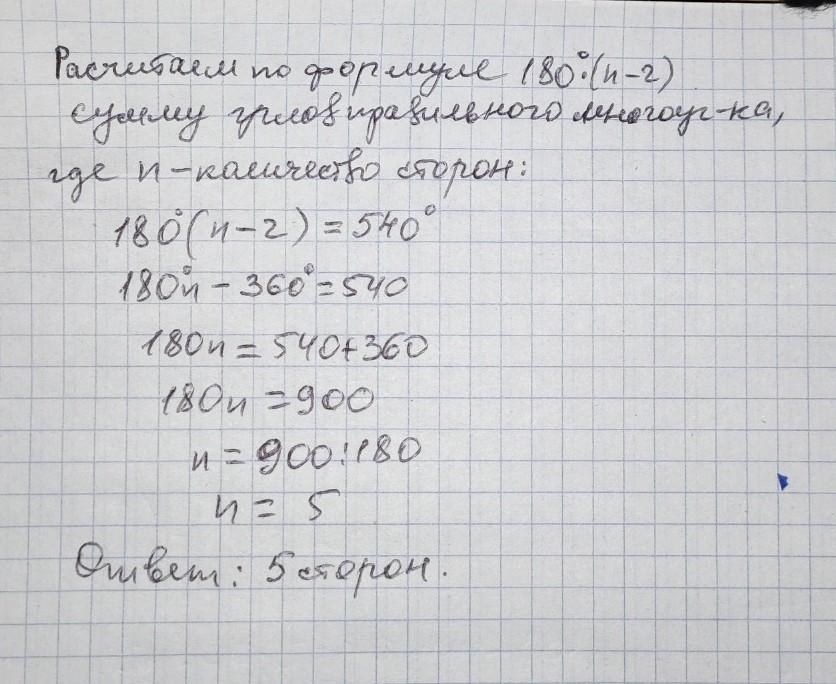 Расчитаем по формуле 180°·(n-2)
сумму углов правильного многоуг-ка,
где n - количество сторон:
180°(n-2) = 540°
180°n - 360° = 540
180n = 540+360
180n = 900
n = 900:180
n = 5
Ответ: 5 сторон.